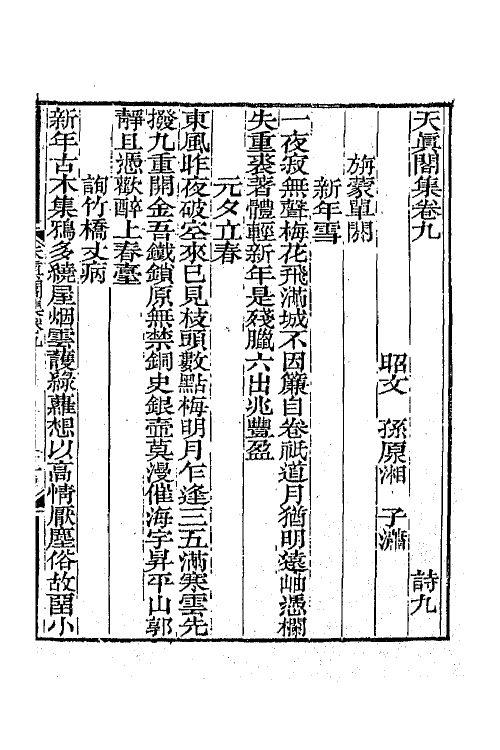 天眞閣集卷九　詩九
昭文　孫原湘　子瀟
旃蒙單閼
新年雪
一夜寂無聲梅花飛滿城不因簾自卷祇道月猶明遠岫憑欄
失重裘著體輕新年是殘臘六出兆豐盈
元夕立春
東風昨夜破空來已見枝頭數點梅明月乍逢三五滿寒雲先
撥九重開金吾鐵鎖原無禁銅史銀壺莫漫催海宇昇平山郭
靜且憑歡醉上春臺
詢竹橋丈病
新年古木集鴉多繞屋烟雲護綠蘿想以高情厭塵俗故留小